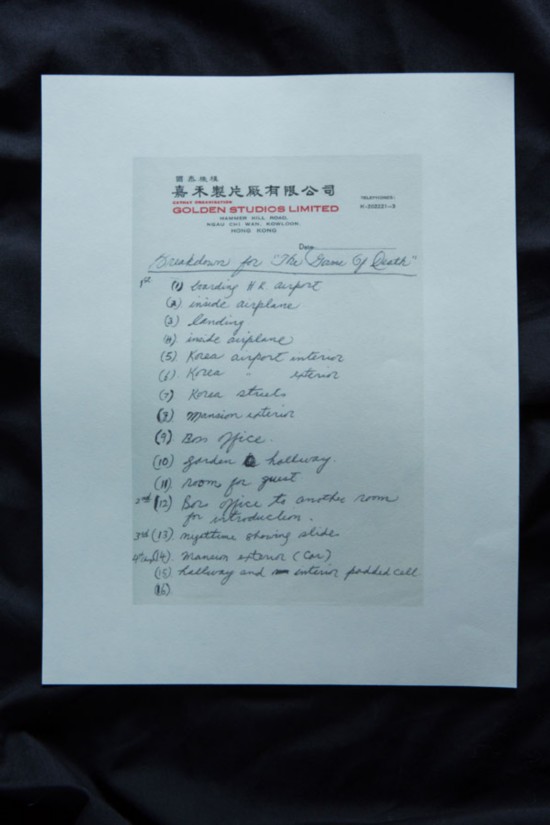 國泰機構
嘉禾製片廠有限公司
CATHAY ORGANISATION
GOLDEN STUDIOS LIMITED
HAMMER HILL ROAD,
NGAU CHI WAN, KOWLOON,
HONG KONG
TELEPHONES:
H-202221-3
Date
Breakdown for "The Game Of Death"
1st (1) boarding H K airport
(2) inside airplane
(3) landing
(4) inside airplane
(5) Korea airport interior
(6) Korea " exterior
(7) Korea streets
(8) Mansion exterior
(9) Boss office.
(10) garden hallway.
(11) room for guest
2nd (12) Boss office to another room
for introduction.
3rd (13) nighttime showing slides
(14). Mansion exterior (Car)
(15) hallway and interior padded cell
(16)